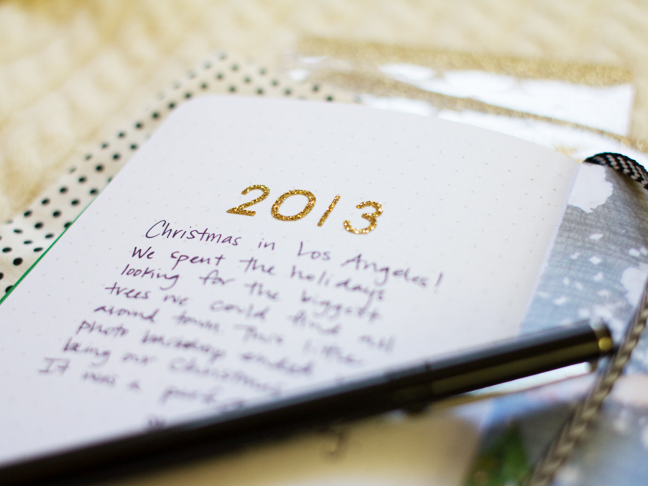 2013
Christmas in Los Angeles!
We spent the holidays
looking for the biggest
trees we could find all
around town. This little
photo backdrop ended
being our Christmas
It was a